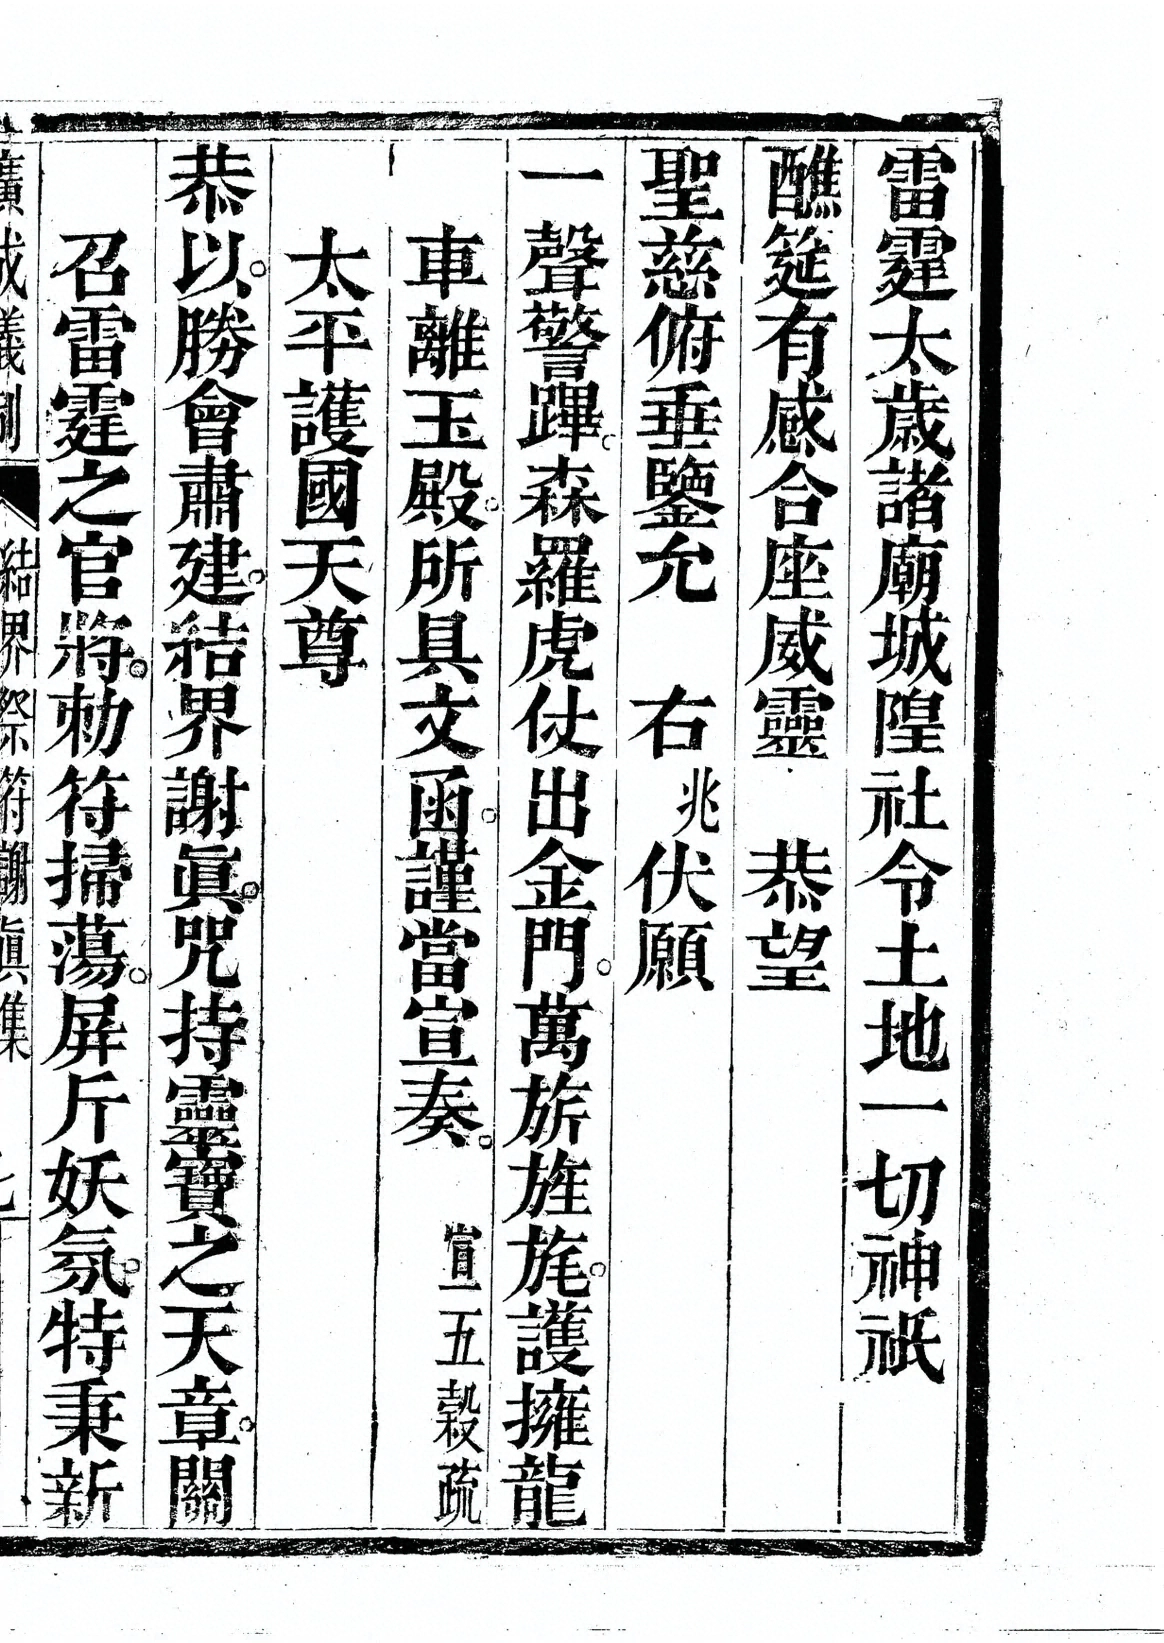 雷霆太歲諸廟城隍社令土地一切神祇
醮筵有感合座威靈　恭望
聖慈俯垂鑒允　右兆伏願
一聲警蹕。森羅虎仗出金門。萬旂旌旄。護擁龍
車離玉殿。所具文函。謹當宣奏。　宣五穀疏
太平護國天尊
恭以。勝會肅建。結界謝眞。咒持靈寶之天章。關
召雷霆之官將。勅符掃蕩。屏斥妖氛。特秉新
廣成儀制　結界祭符謝眞集　七